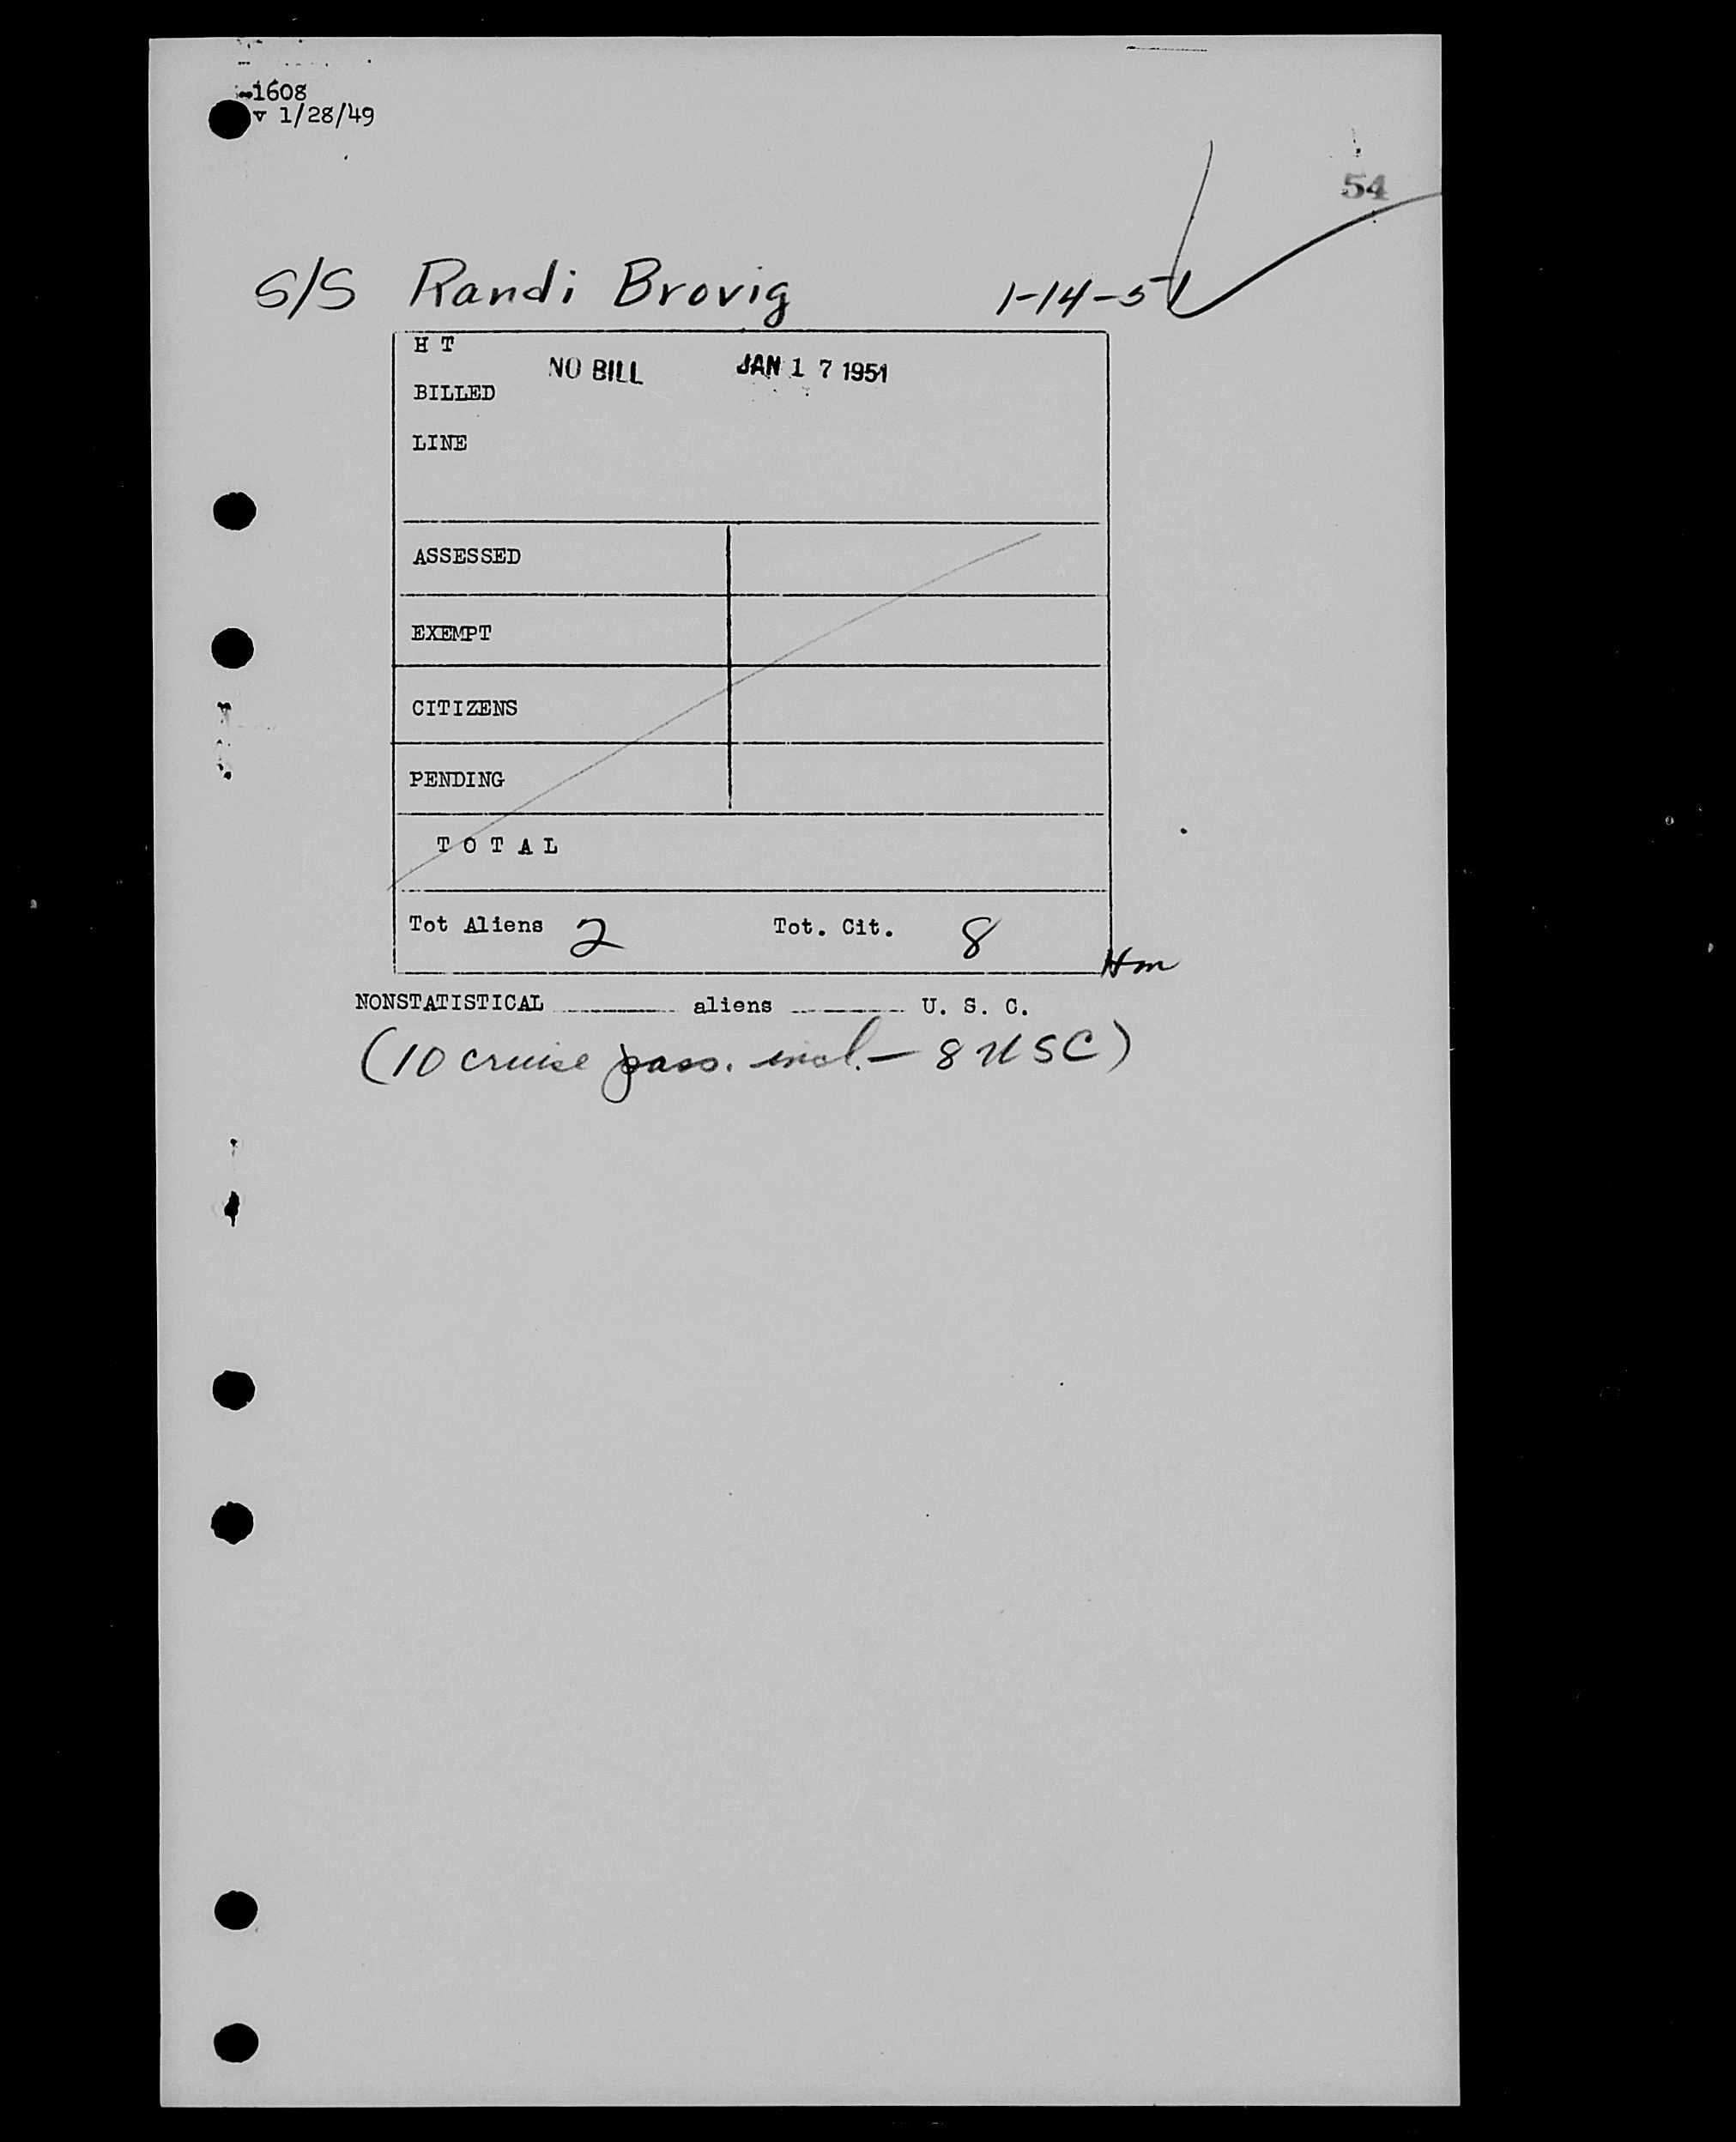 -1608
v 1/28/49
54
S/S Randi Brovig 1-14-51
H T
NO BILL JAN 17 1951
BILLED
LINE
ASSESSED
EXEMPT
CITIZENS
PENDING
T O T A L
Tot Aliens 2 Tot. Cit. 8
Hm
NONSTATISTICAL ________ aliens ________ U. S. C.
(10 cruise pass. incl. — 8 USC)